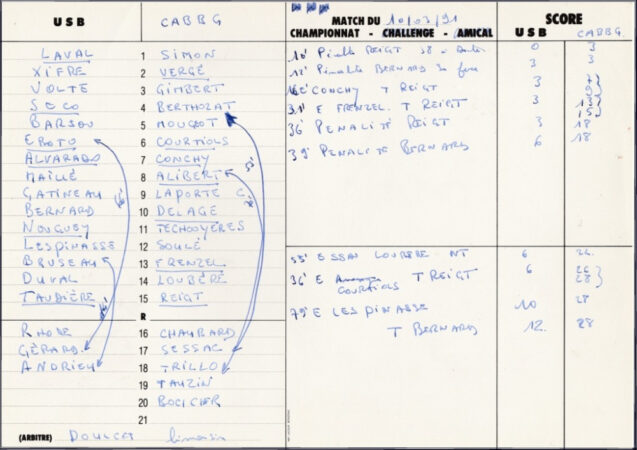 USB CABBG
LAVAL 1 SIMON
XIFRE 2 VERGÉ
VOLTE 3 GIMBERT
SOCO 4 BERTHOZAT
BARSOU 5 MOUGEOT
EROTU 6 COURTIOLS
ALVARADO 7 CONCHY
MAILLÉ 8 ALIBERT
GATINEAU 9 LAPORTE
BERNARD 10 DELAGE
NOUGUEY 11 TECHOUYERES
LESPINASSE 12 SOULÉ
BRUSEAU 13 FRENZEL
DUVAL 14 LOUBÈRE
TAUDIÈRE 15 REIGT
R
RHODE 16 CHAUBARD
GÉRARD 17 SESSAC
ANDRIEU 18 TRILLO
19 TAUZIN
20 BOCICHER
21
(ARBITRE) DOULCET limousin
MATCH DU 10/03/91
CHAMPIONNAT - CHALLENGE - AMICAL
SCORE
USB CABBG.
10' Pénalité REIGT 0 3
12' Pénalité BERNARD 3 3
CONCHY T REIGT 3 9
31' E FRENZEL T REIGT 3 15
36' PENALITÉ REIGT 3 18
39' PENALITE BERNARD 6 18
55' ESSAI LOUBERE NT 6
36' E COURTIOLS T REIGT 6 28
79' E LESPINASSE 10 28
T BERNARD 12 28